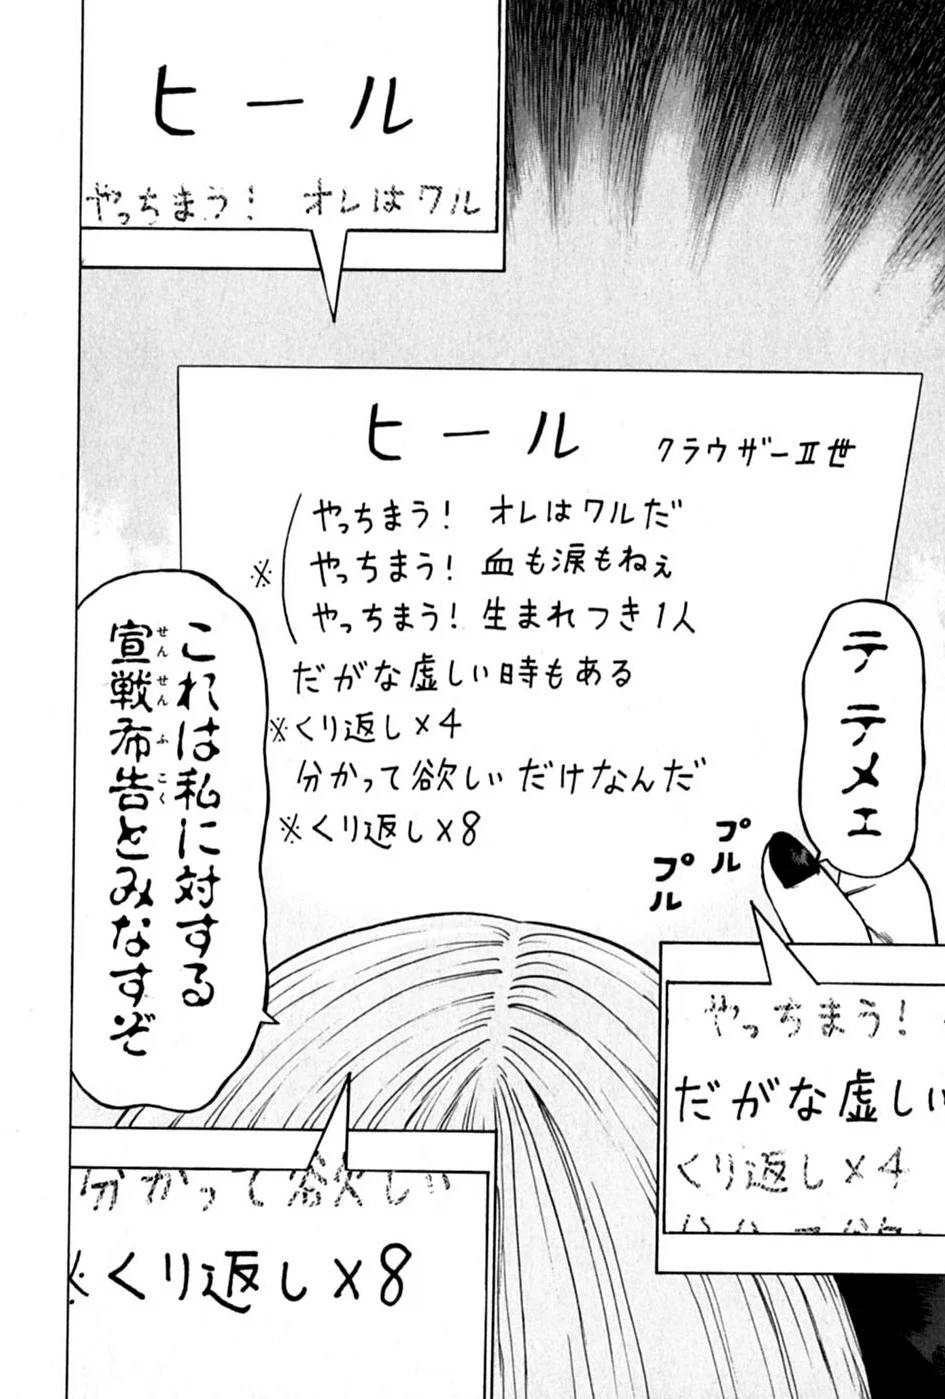 ヒール
やっちまう! オレはワル
ヒール クラウザーⅡ世
やっちまう! オレはワルだ
※ やっちまう! 血も涙もねぇ
やっちまう! 生まれつき1人
だがな虚しい時もある
※くり返し×4
分かって欲しいだけなんだ
※くり返し×8
テ テメェ
プル
プル
やっちまう!
だがな虚しい
くり返し×4
これは私に対する
宣戦布告とみなすぞ
せんせんふこく
分かって欲しい
※くり返し×8